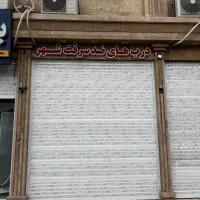 درب های ضد سرقت شهر